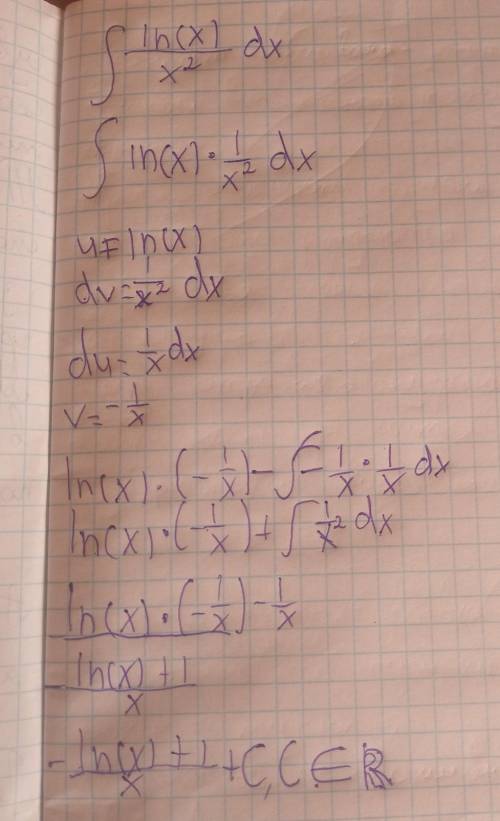 ∫ ln(x)/x² dx
∫ ln(x)·1/x² dx
u=ln(x)
dv=1/x² dx
du=1/x dx
v=-1/x
ln(x)·(-1/x)-∫-1/x·1/x dx
ln(x)·(-1/x)+∫1/x² dx
ln(x)·(-1/x)-1/x
-(ln(x)+1)/x
-(ln(x)+1)/x+C, C∈ℝ